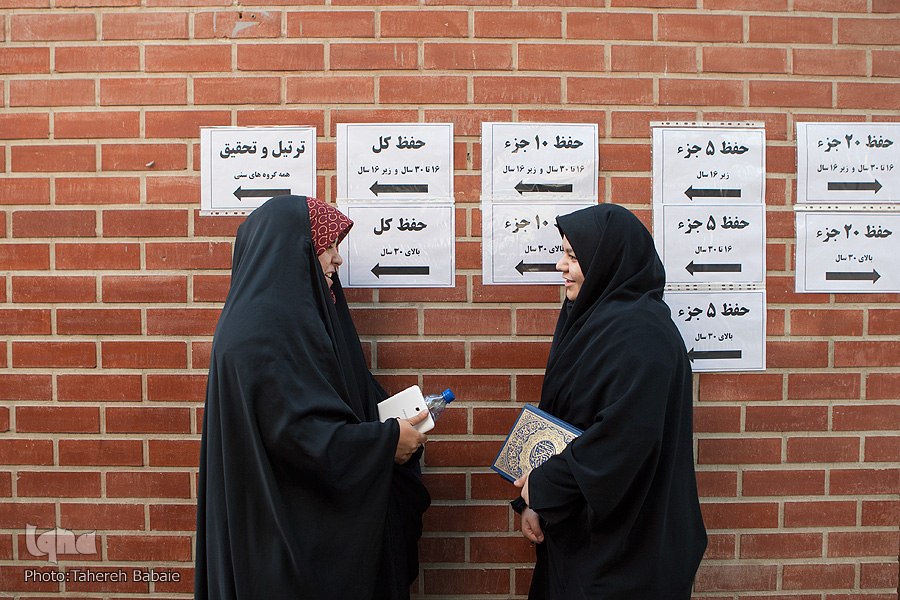 ترتیل و تحقیق
همه گروه های سنی
حفظ کل
۱۶ تا ۳۰ سال و زیر ۱۶ سال
حفظ کل
بالای ۳۰ سال
حفظ ۱۰ جزء
۱۶ تا ۳۰ سال و زیر ۱۶ سال
حفظ ۱۰ جزء
بالای ۳۰ سال
حفظ ۵ جزء
زیر ۱۶ سال
حفظ ۵ جزء
۱۶ تا ۳۰ سال
حفظ ۵ جزء
بالای ۳۰ سال
حفظ ۲۰ جزء
۱۶ تا ۳۰ سال و زیر ۱۶ سال
حفظ ۲۰ جزء
بالای ۳۰ سال
iqna
Photo:Tahereh Babaie